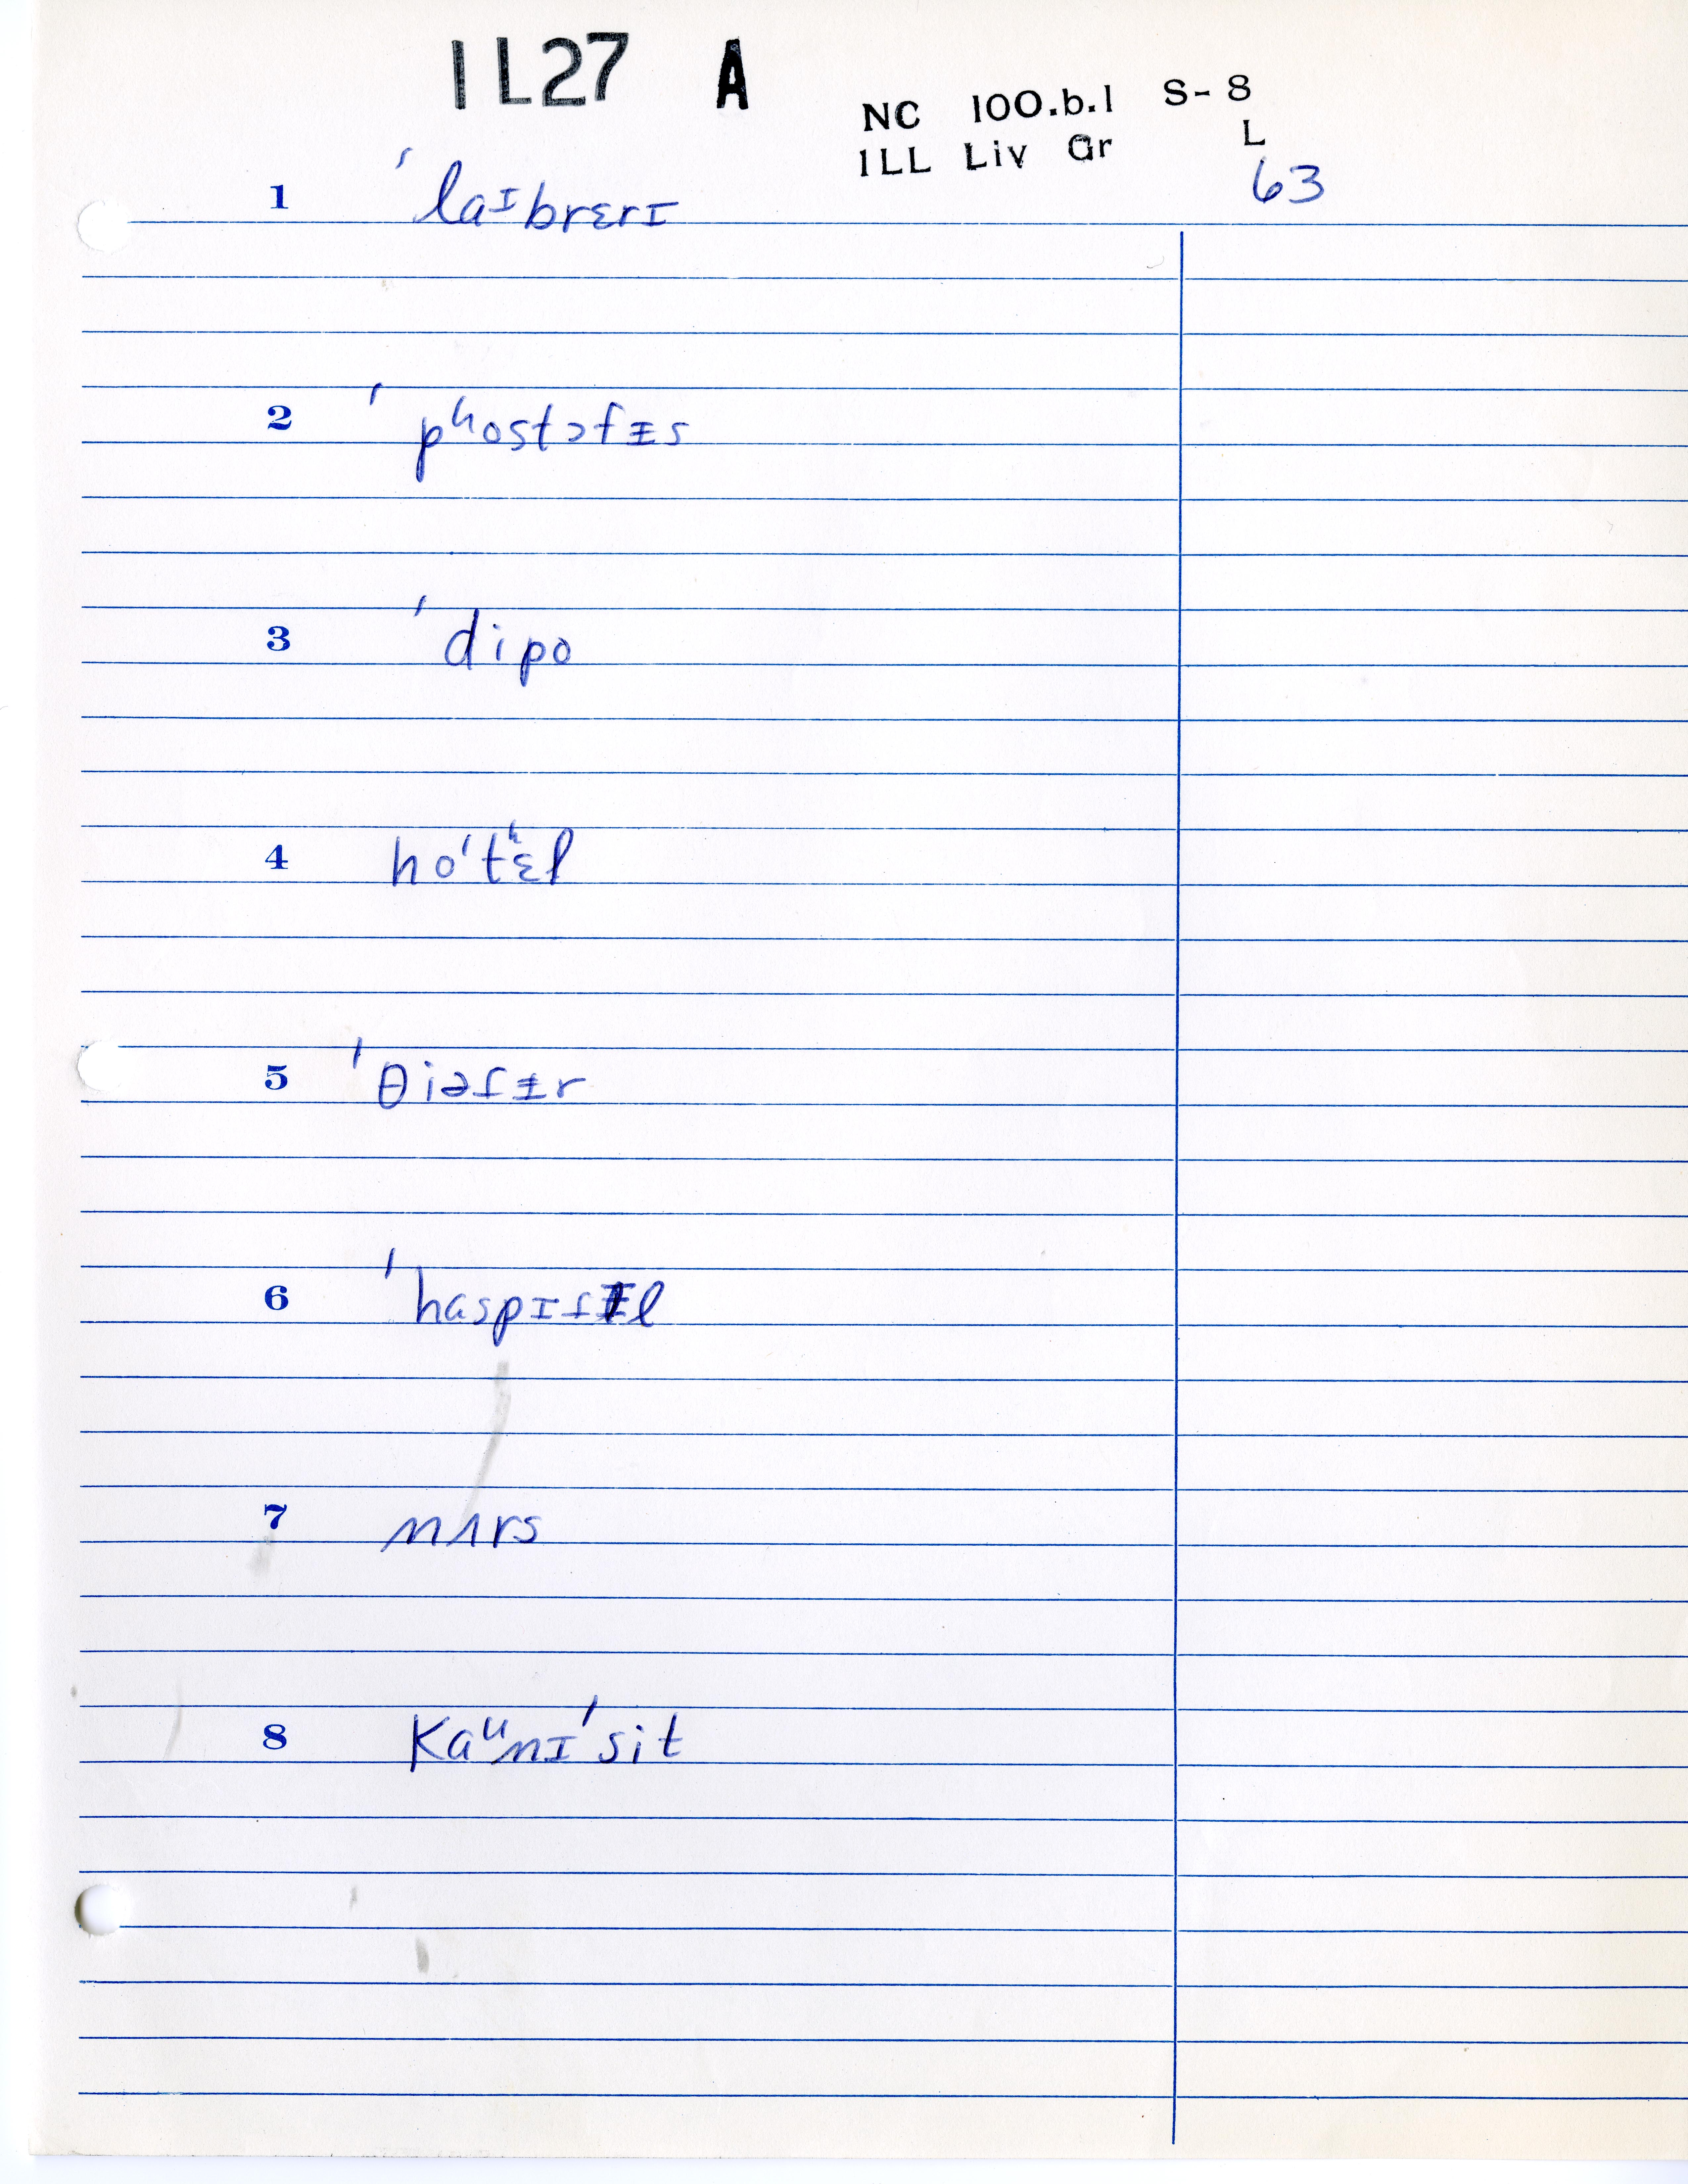 1L27 A
NC 100.b.1 S-8
ILL Liv Gr L
63
1 ˈlaᴵbrɛrɪ
2 ˈpʰostɔfᵻs
3 ˈdipo
4 hoˈtʰɛl
5 ˈθiəɾᵻr
6 ˈhaspɪɾᵻl
7 nʌrs
8 kaᵘnɪˈsit